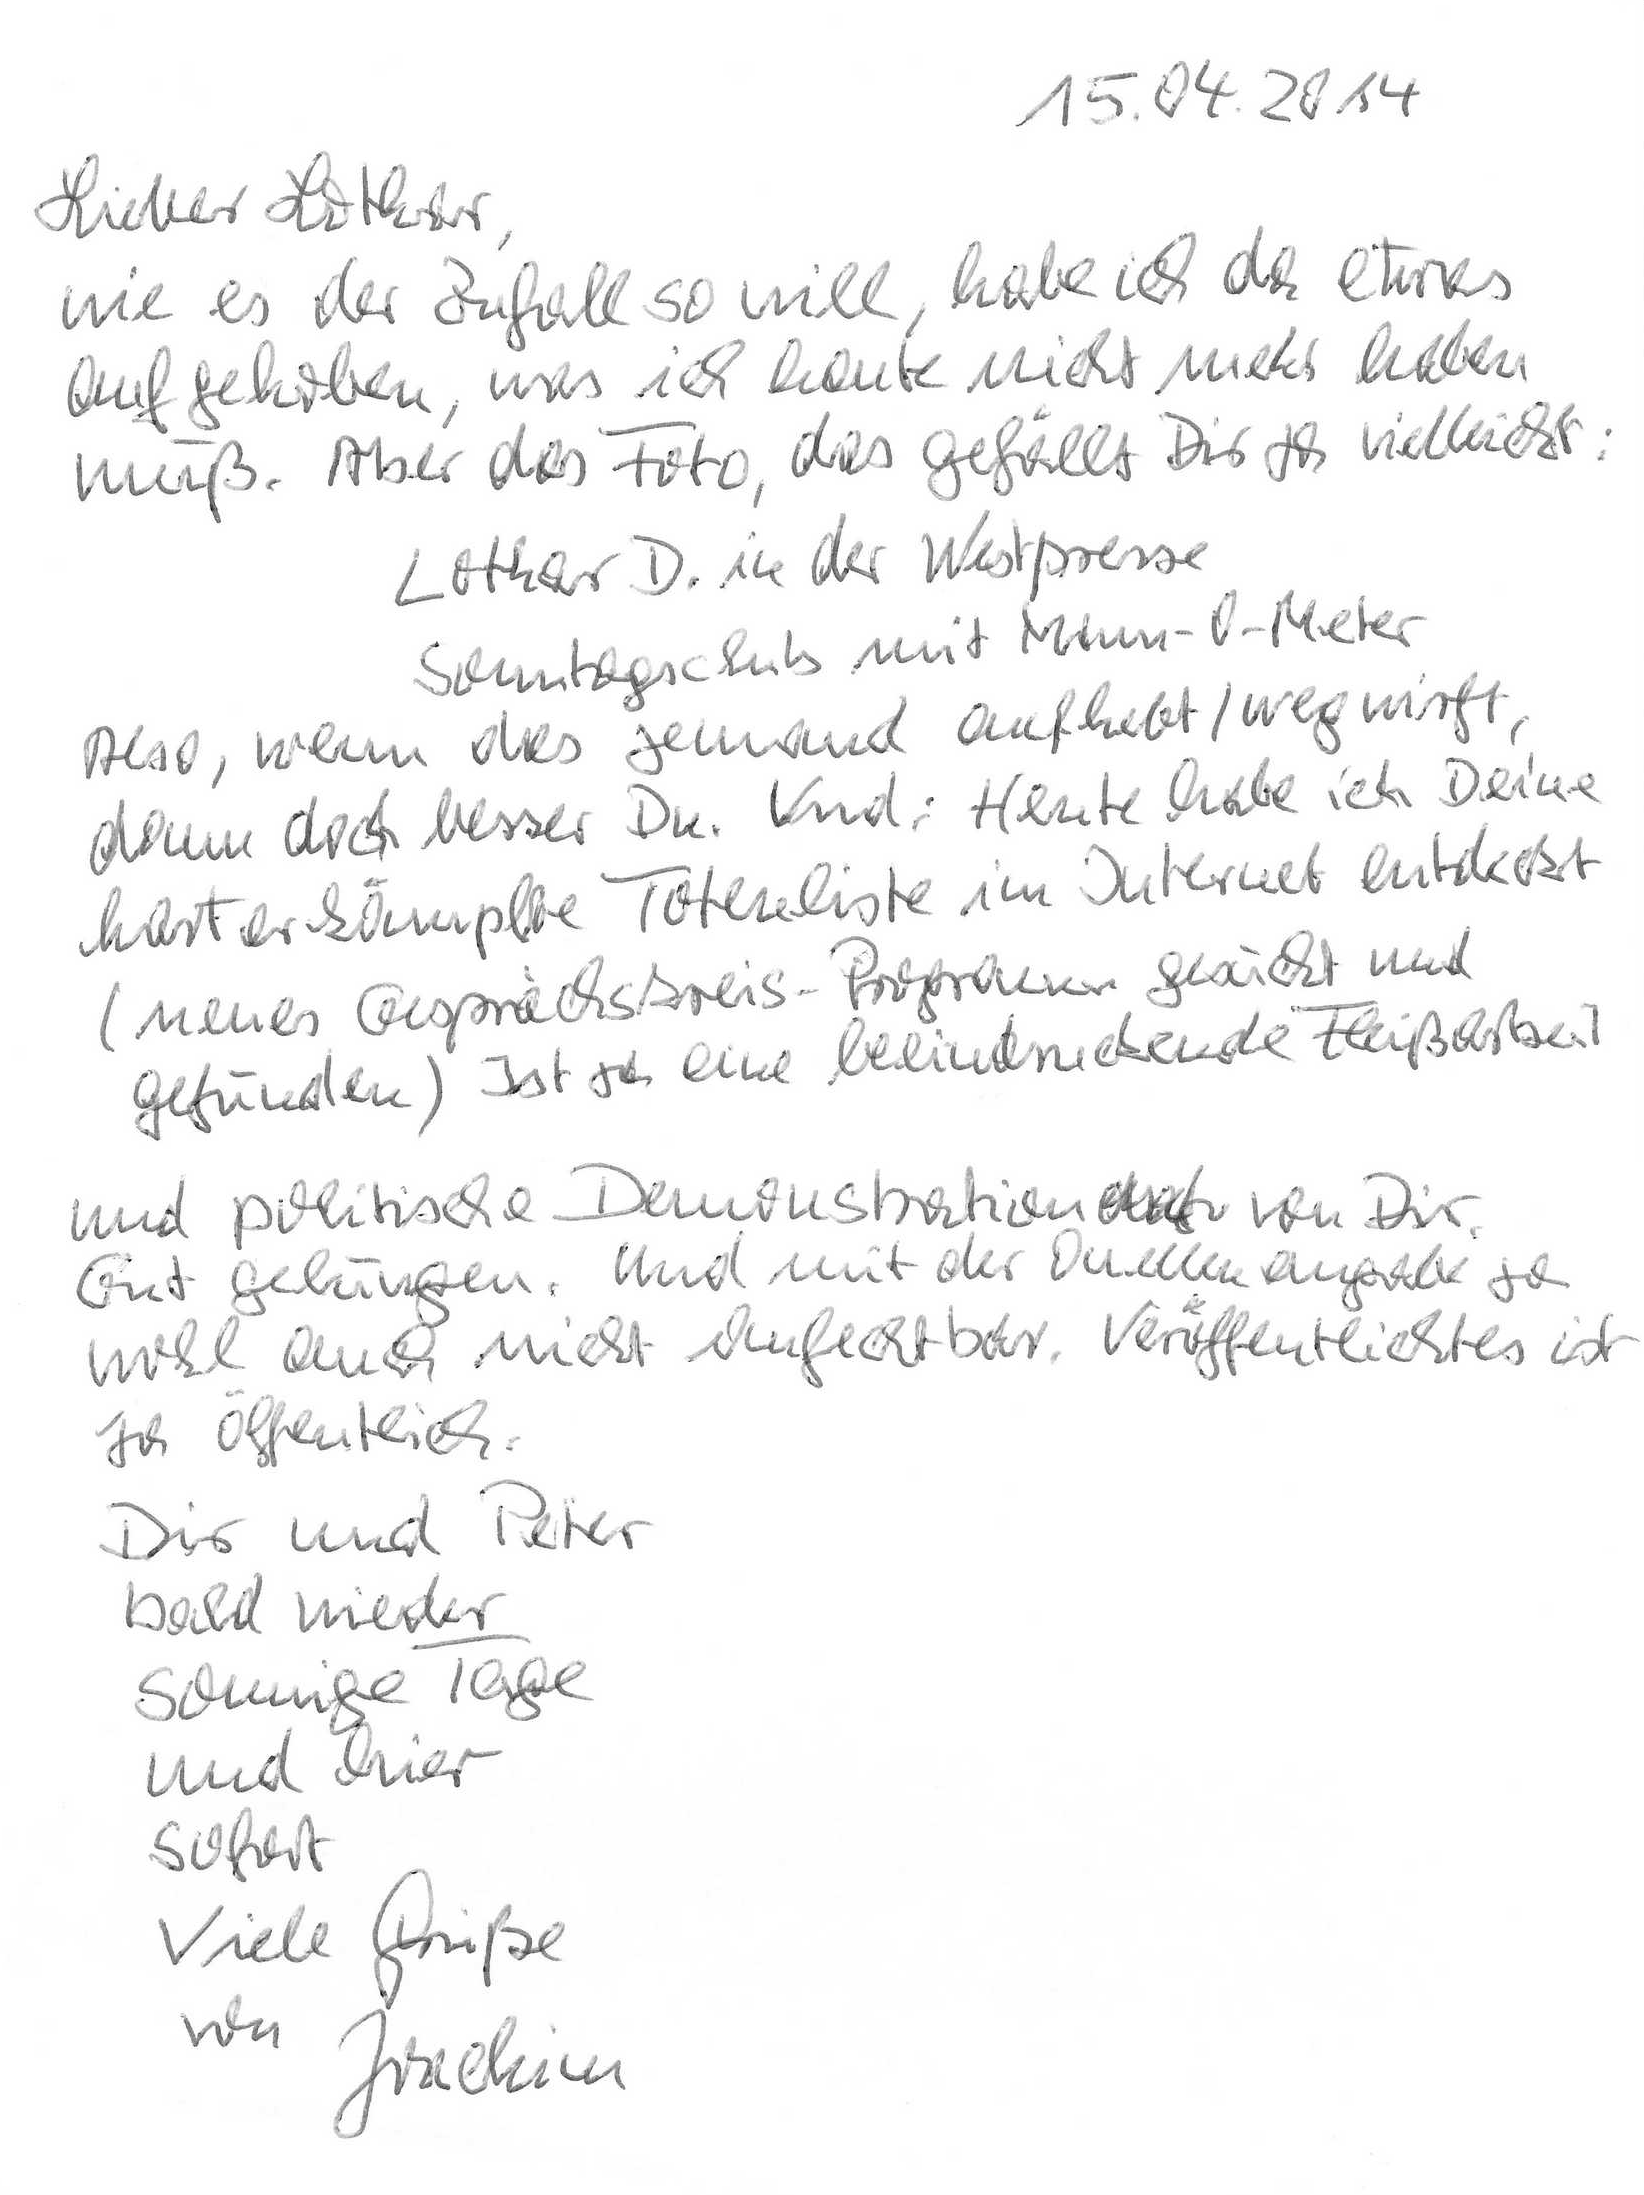 15.04.2014
Lieber Lothar,
wie es der Zufall so will, habe ich da etwas
aufgehoben, was ich heute nicht mehr haben
muß. Aber das Foto, das gefällt Dir ja vielleicht:
Lothar D. in der Westpresse
Sonntagsclub mit Mann-O-Meter
Also, wenn das jemand aufhebt/wegwirft,
dann doch besser Du. Und: Heute habe ich Deine
hart erkämpfte Totenliste im Internet entdeckt
(neues Gesprächskreis-Programm gesucht und
gefunden) Ist ja eine beeindruckende Fleißarbeit
und politische Demonstration von Dir.
Gut gelungen. Und mit der Quellenangabe ja
wohl auch nicht anfechtbar. Veröffentlichtes ist
ja öffentlich.
Dir und Peter
bald wieder
sonnige Tage
und hier
sofort
Viele Grüße
von Joachim